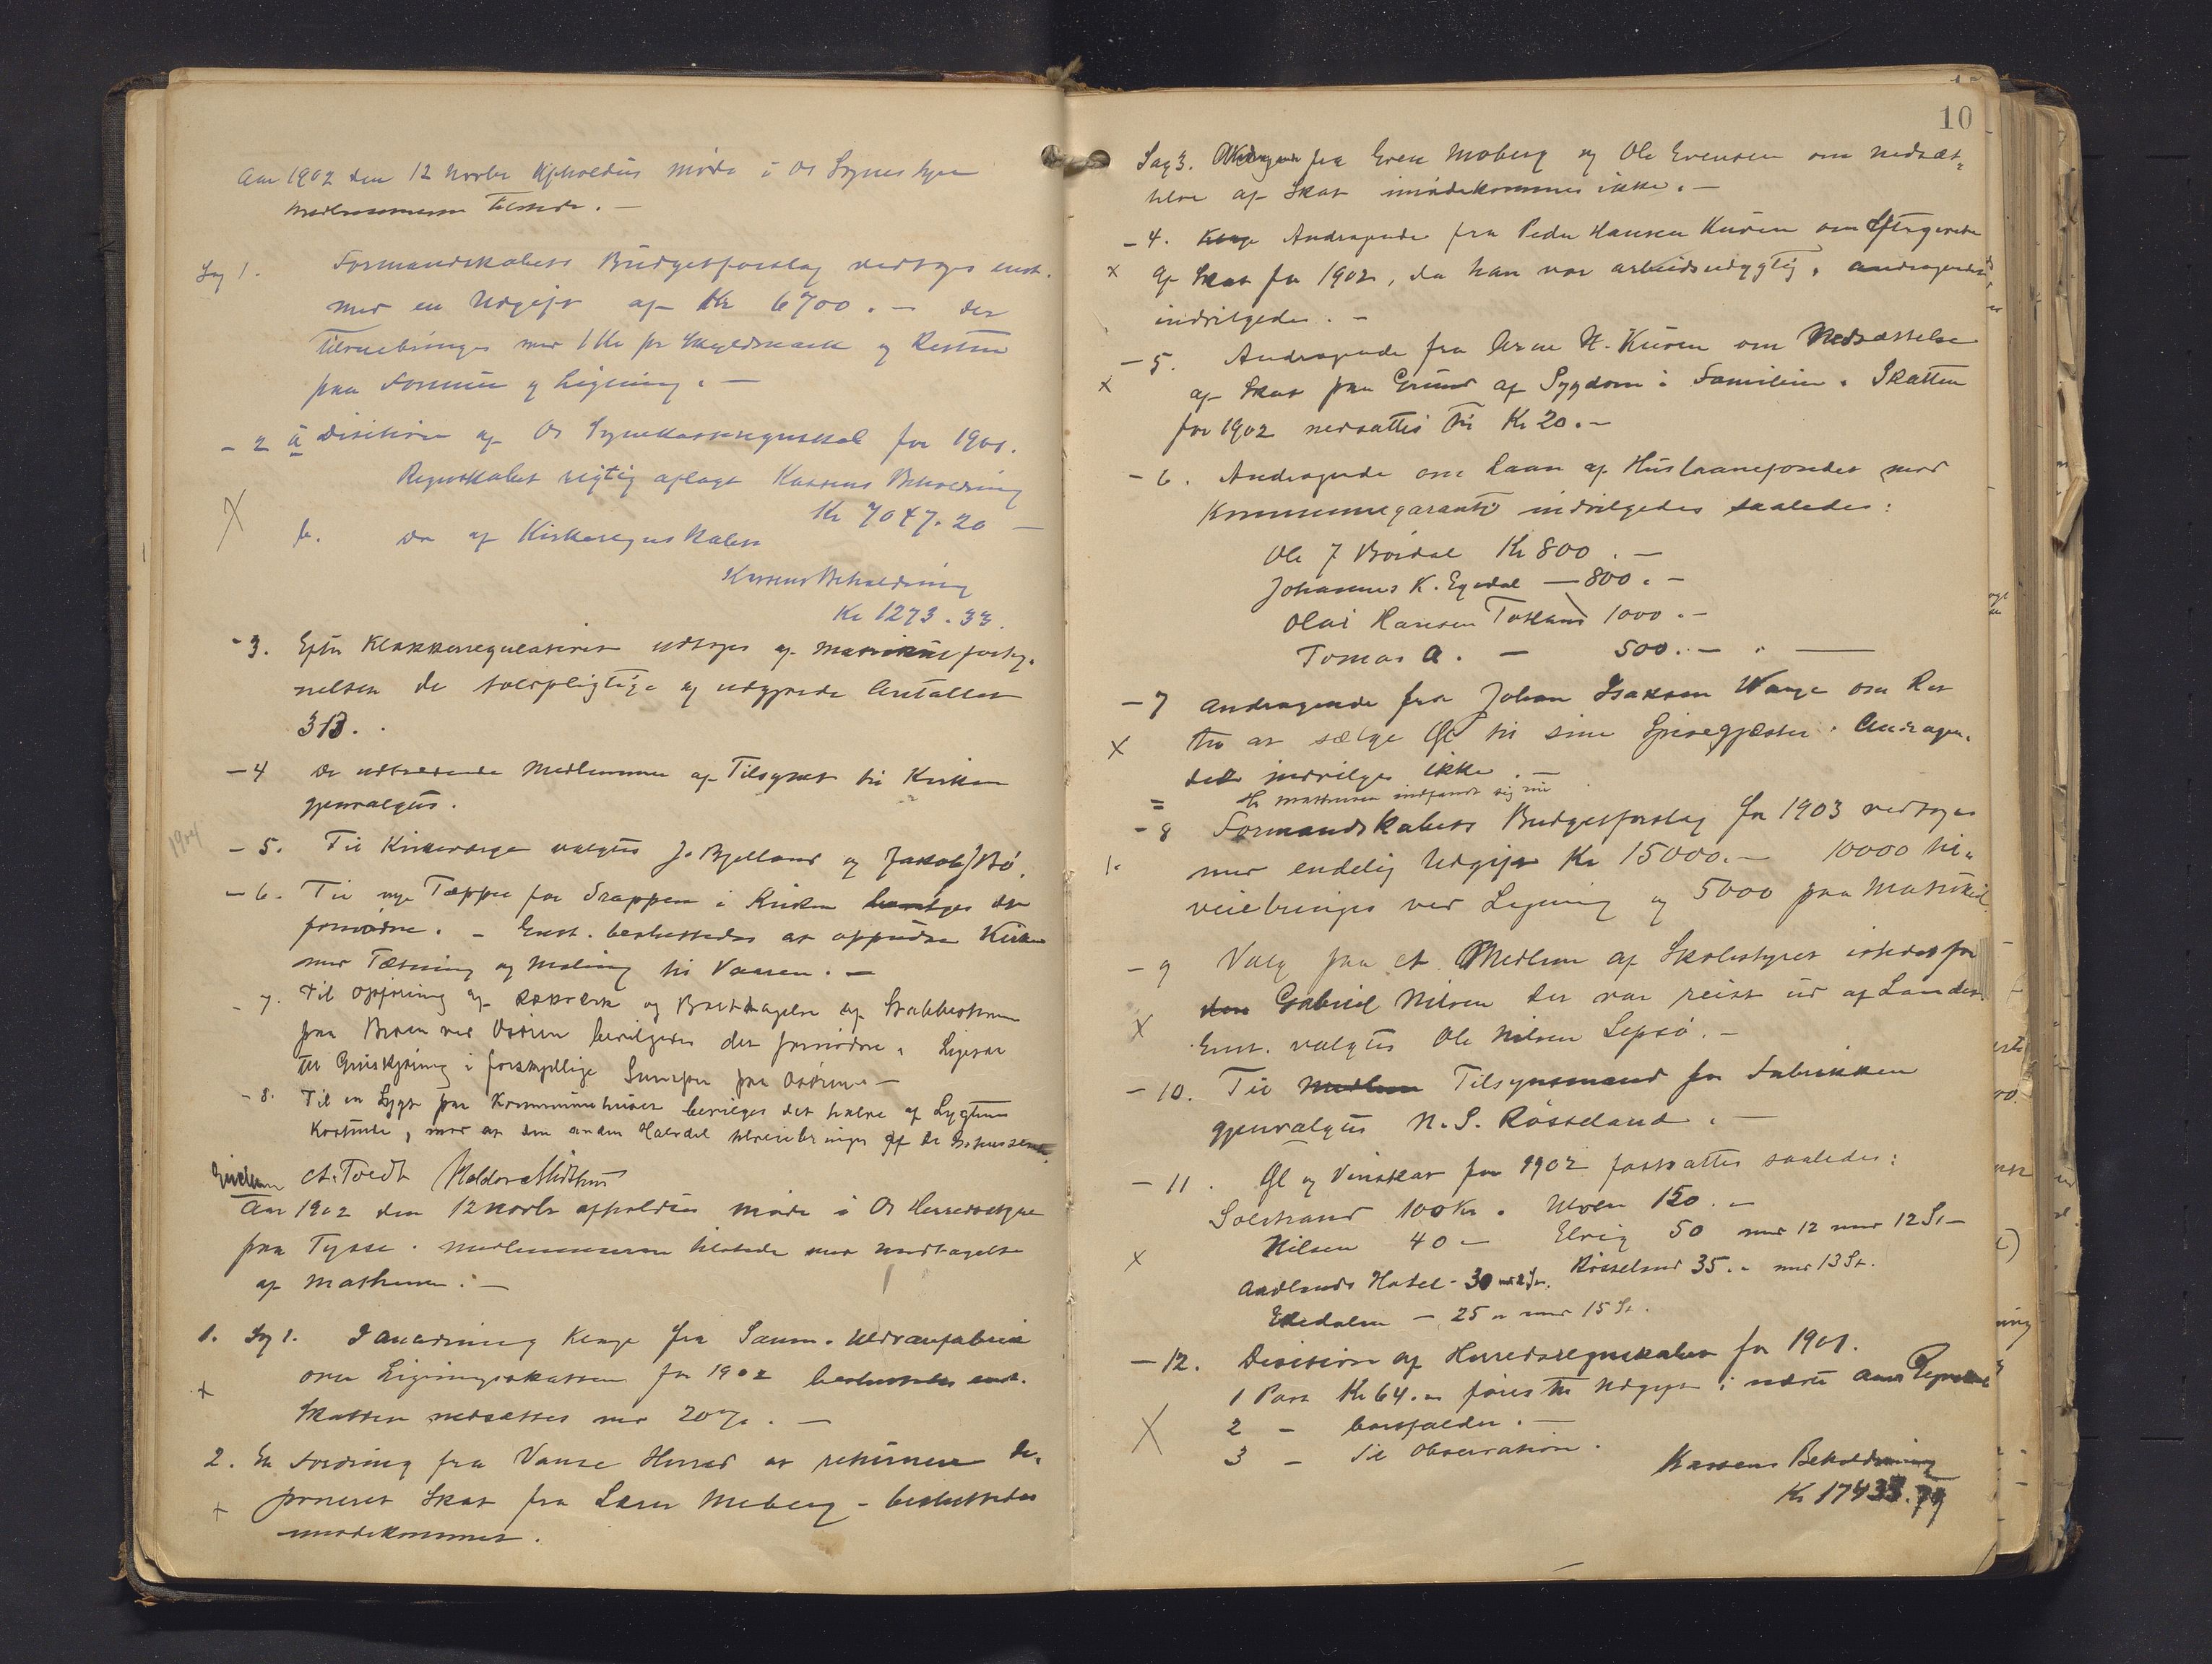 Aar 1902 den 12 Novbr afholdtes Møde i Os Sognestyre
Medlemmerne tilstede. —
Sag 1. Formandskabets Budgetforslag vedtoges enst.
med en Udgift af Kr 6700. — der
tilveiebringes med 1 Kr pr Skyldmark og Resten
paa Formue og Ligning. —
- 2 a Decision af Os Sognekasseregnskab for 1901.
Regnskabet rigtig aflagt Kassens Beholdning
Kr 7047.20 —
b. Do af Kirkeregnskabet
Kassens Beholdning
Kr 1273.33.
- 3. Efter Klokkerregulativet udtoges af Matrikul forteg-
nelsen de toldpligtige og udgjorde Antallet
313.
- 4 De udtrædende Medlemmer af Tilsynet til Kirken
gjenvalgtes.
1904
- 5. Til Kirkeverge valgtes J. Bjelland og Jakob J Bø.
- 6. Til nye Tæpper for Trappen i Kirken bevilges det
fornødne. — Enst. besluttedes at oppudse Kirken
med Tætning og Maling til Vaaren. —
- 7. Til Opføring af Rækværk og Borttagelse af
paa Broen ved Osøren bevilgedes det fornødne. Ligesaa
til Gruskjøring i forskjellige Sumper paa Osøren —
- 8. Til en Lygt paa Kommunehuset bevilges det halve af Lygtens
Kostende, mod at den anden Halvdel tilveiebringes af de Interesserede
A. Tvedt Haldor Midthus
Aar 1902 den 12 Novbr afholdtes Møde i Os Herredsstyre
paa Tysse. Medlemmerne tilstede med Undtagelse
af Mathisen. —
1. Sag 1. I Anledning Klage fra Samn. Uldvarefabrik
over Ligningsskatten for 1902 besluttedes enst.
Skatten nedsættes med 20 %. —
2. En Fordring fra Vanse Herred at returnere de-
poneret Skat fra Lærer Meberg — besluttedes
imødekommet.
10
Sag 3. Andragende fra Even Moberg og Ole Evensen om Nedsæt-
telse af Skat imødekommes ikke. —
- 4. Klage Andragende fra Peder Hansen Kuven om Eftergivelse
af Skat for 1902, da han var arbeidsudygtig. Andragendet
indvilgedes. —
- 5. Andragende fra Arne H. Kuven om Nedsættelse
af Skat paa Grund af Sygdom i Familien. Skatten
for 1902 nedsattes til Kr 20. —
- 6. Andragende om Laan af Huslaanefondet mod
Kommunegaranti indvilgedes saaledes:
Ole J Bordal Kr 800. —
Johannes K. Egedal — 800. —
Olai Hansen Tøsland 1000. —
Tomas A. — 500. — " —
- 7 Andragende fra Johan Isaksen Wange om Ret
til at sælge Øl til sine Spisegjæster. Andragen-
det indvilges ikke. —
Hr Mathisen indfandt sig nu
- 8 Formandskabets Budgetforslag for 1903 vedtoges
med endelig Udgift Kr 15000. — 10000 til-
veiebringes ved Ligning og 5000 paa Matrikul.
- 9 Valg paa et Medlem af Skolestyret istedetfor
den Gabriel Nilsen der var reist ud af Landet
Enst. valgtes Ole Nilsen Lepsø. —
- 10. Til Medlem Tilsynsmand for Fabrikken
gjenvalgtes N. S. Røsseland. —
- 11. Øl og Vinskat for 1902 fastsattes saaledes:
Solstrand 100 Kr. Ulven 150. —
Nilsen 40 — Elvig 50 mod 12 mod 12 St —
Aadlands Hotel - 30 mod 2 St. Røsseland 35. — mod 13 St.
Ekedalen — 25 " mod 15 St.
- 12. Decision af Herredsregnskabet for 1901.
1 Post Kr 64. — føres til Udgift i næste Aars Regnskab
2 — bortfalder. —
3 — Til Observation.
Kassens Beholdning
Kr 17433.79